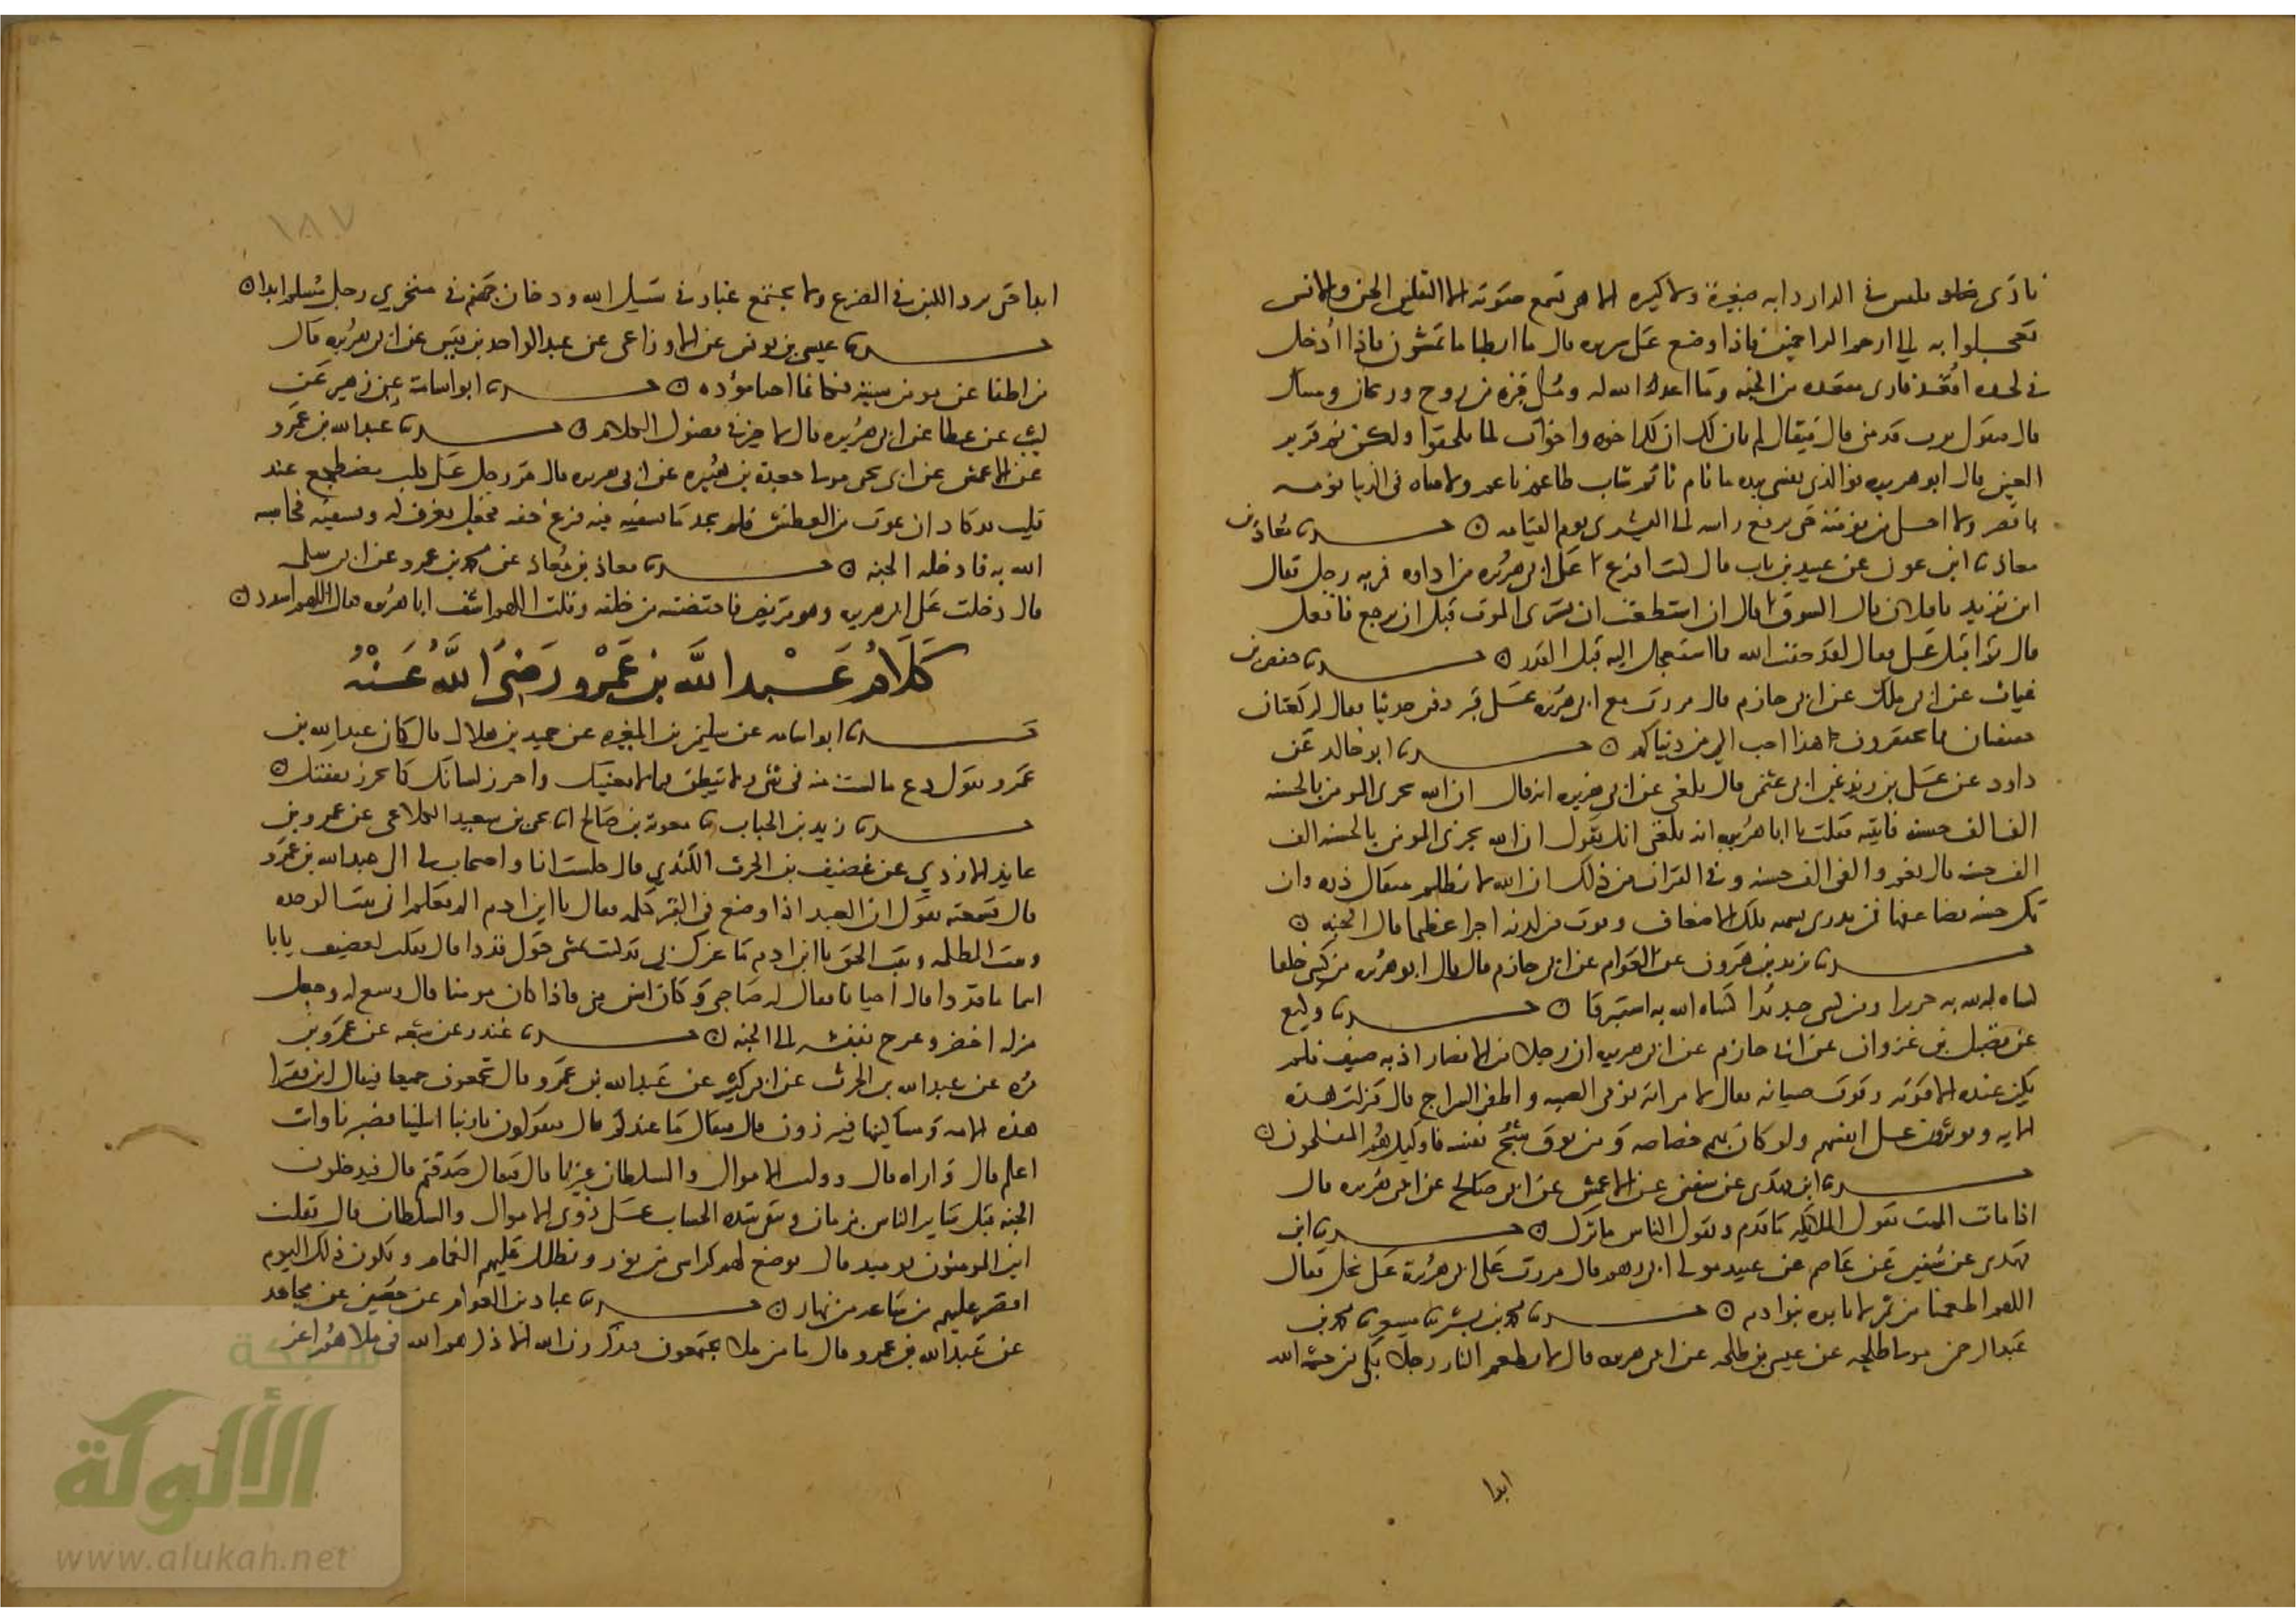 نادى فليس في الدار دابه صغيرة ولا كبيره الا هي تسمع صوته الا الثقلين الجن والانس
تعجلوا به الى ارحم الراحمين فاذا وضع على سريره قال ما ابطا ما تمشون فاذا ادخل
في لحده اقعد فارى مقعده من الجنه وما اعد الله له وملي قبره من روح وريحان ومسك
قال فيقول يرب قدمني قال فيقال لم يان لك ان لك اخوه واخوات لما يلحقوا ولكن نم قرير
العين قال ابو هريره فوالذي نفسي بيده ما نام نائم شاب طاعم ناعم ولا فتاه في الدنيا نومه
باقصر ولا احلى من نومته حتى يرفع راسه الى البشرى يوم القيامه ٥ حدثنا معاذ بن
معاذ ثنا ابن عون عن عبيد بن باب قال كنت افرغ على ابي هريره من اداوه فمر به رجل فقال
اين تريد يا فلان قال السوق قال ان استطعت ان تشتري الموت قبل ان ترجع فافعل
قال ثم اقبل علي فقال لقد خفت الله مما استعجل اليه قبل القدر ٥ حدثنا حفص بن
غياث عن ابي ملك عن ابي حازم قال مررت مع ابي هريره على قبر دفن حديثا فقال لركعتان
خفيفتان مما تحتقرون هذا احب الي من دنياكم ٥ حدثنا ابو خالد عن
داود عن علي بن زيد عن ابي عثمن قال بلغني عن ابي هريره انه قال ان الله يجزي المومن بالحسنه
الف الف حسنه فاتيته فقلت يا ابا هريره انه بلغني انك تقول ان الله يجزي المومن بالحسنه الف
الف حسنه قال نعم والفي الف حسنه وفي القران من ذلك ان الله لا يظلم مثقال ذره وان
تك حسنه يضاعفها فمن يدري تسميه تلك الاضعاف ويوت من لدنه اجرا عظيما قال الجنه ٥
حدثنا يزيد بن هرون عن العوام عن ابي حازم قال قال ابو هريره من كسى خلقا
كساه الله به حريرا ومن كسى جديدا كساه الله به استبرقا ٥ حدثنا وكيع
عن فضيل بن غزوان عن ابي حازم عن ابي هريره ان رجلا من الانصار اذ به ضيف فلم
يكن عنده الا قوته وقوت صبيانه فقال لامراته نومي الصبيه واطفي السراج قال فنزلت هذه
الايه ويوثرون على انفسهم ولو كان بهم خصاصه ومن يوق شح نفسه فاوليك هم المفلحون ٥
حدثنا ابن مهدي عن سفين عن الاعمش عن ابي صالح عن ابي هريره قال
اذا مات الميت تقول الملائكه ما قدم ويقول الناس ما ترك ٥ حدثنا ابن
مهدي عن سفين عن عاصم عن عبيد مولى ابي رهم قال مررت مع ابي هريرة على نخل فقال
اللهم اطعمنا من تمر لا يابره بنو ادم ٥ حدثنا محمد بن بشر ثنا مسعر ثنا محمد بن
عبد الرحمن مولى طلحه عن عيسى بن طلحه عن ابي هريره قال لا يطعم النار رجلا بكى من خشيه الله
ابدا
١٨٧
ابدا حتى يرد اللبن في الضرع ولا يجتمع غبار في سبيل الله ودخان جهنم في منخري رجل مسلم ابدا ٥
حدثنا عيسى بن يونس عن الاوزاعي عن عبد الواحد بن قيس عن ابي هريره قال
من اطفا عن مومن سيئه فكانما احيا موؤده ٥ حدثنا ابو اسامه عن زهير عن
ليث عن عطا عن ابي هريره قال لا خير في فضول الكلام ٥ حدثنا عبد الله بن نمير
عن الاعمش عن ابي يحيى مولى جعدة بن هبيره عن ابي هريره قال مر رجل على كلب مضطجع عند
قليب قد كاد ان يموت من العطش فلم يجد ما يسقيه فيه فنزع خفه فجعل يغرف له ويسقيه فحاسبه
الله به فادخله الجنه ٥ حدثنا معاذ بن معاذ عن محمد بن عمرو عن ابي سلمه
قال دخلت على ابي هريره وهو مريض فاحتضنته من خلفه وقلت اللهم اشف ابا هريره فقال اللهم اشدد ٥
كَلَامُ عَبْدِ اللَّهِ بن عَمْرو رَضِيَ اللَّهُ عَنْهُ
حدثنا ابو اسامه عن سليمن بن المغيره عن حميد بن هلال قال كان عبد الله بن
عمرو يقول دع ما لست منه في شي ولا تنطق فيما لا يعنيك واحرز لسانك كما تحرز نفقتك ٥
حدثنا زيد بن الحباب ثنا معويه بن صالح انا يحيى بن سعيد الكلاعي عن عمرو بن
عايذ الازدي عن غضيف بن الحرث الكندي قال جلست انا واصحاب لي الى عبد الله بن عمرو
قال فسمعته يقول ان العبد اذا وضع في القبر كلمه فقال يا ابن ادم الم تعلم اني بيت الوحده
وبيت الظلمه وبيت الحق يا ابن ادم ما غرك بي قد كنت تمشي حولي فدادا قال فقلت لغضيف يابا
اسما ما فدادا قال احيانا فقال له صاحبي وكان اسن مني فاذا كان مومنا قال وسع له وجعل
منزله اخضر وعرج بنفسه الى الجنه ٥ حدثنا غندر عن شعبه عن عمرو بن
مره عن عبد الله بن الحرث عن ابي كثير عن عبد الله بن عمرو قال تجمعون جميعا فيقال اين فقرا
هذه الامه ومساكينها فيبرزون قال فيقال ما عندكم قال فيقولون يا ربنا ابتلينا فصبرنا وانت
اعلم قال واراه قال ووليت الاموال والسلطان غيرنا قال فيقال صدقتم قال فيدخلون
الجنه قبل ساير الناس بزمان وتبقى شده الحساب على ذوي الاموال والسلطان قال فقلت
اين المومنون يومئذ قال يوضع لهم كراسي من نور ويظلل عليهم الغمام ويكون ذلك اليوم
اقصر عليهم من ساعه من نهار ٥ حدثنا عباد بن العوام عن حصين عن مجاهد
عن عبد الله بن عمرو قال ما من ملا يجتمعون فيذكرون الله الا ذكرهم الله في ملا هم اعز
شبكة
الألوكة
www.alukah.net